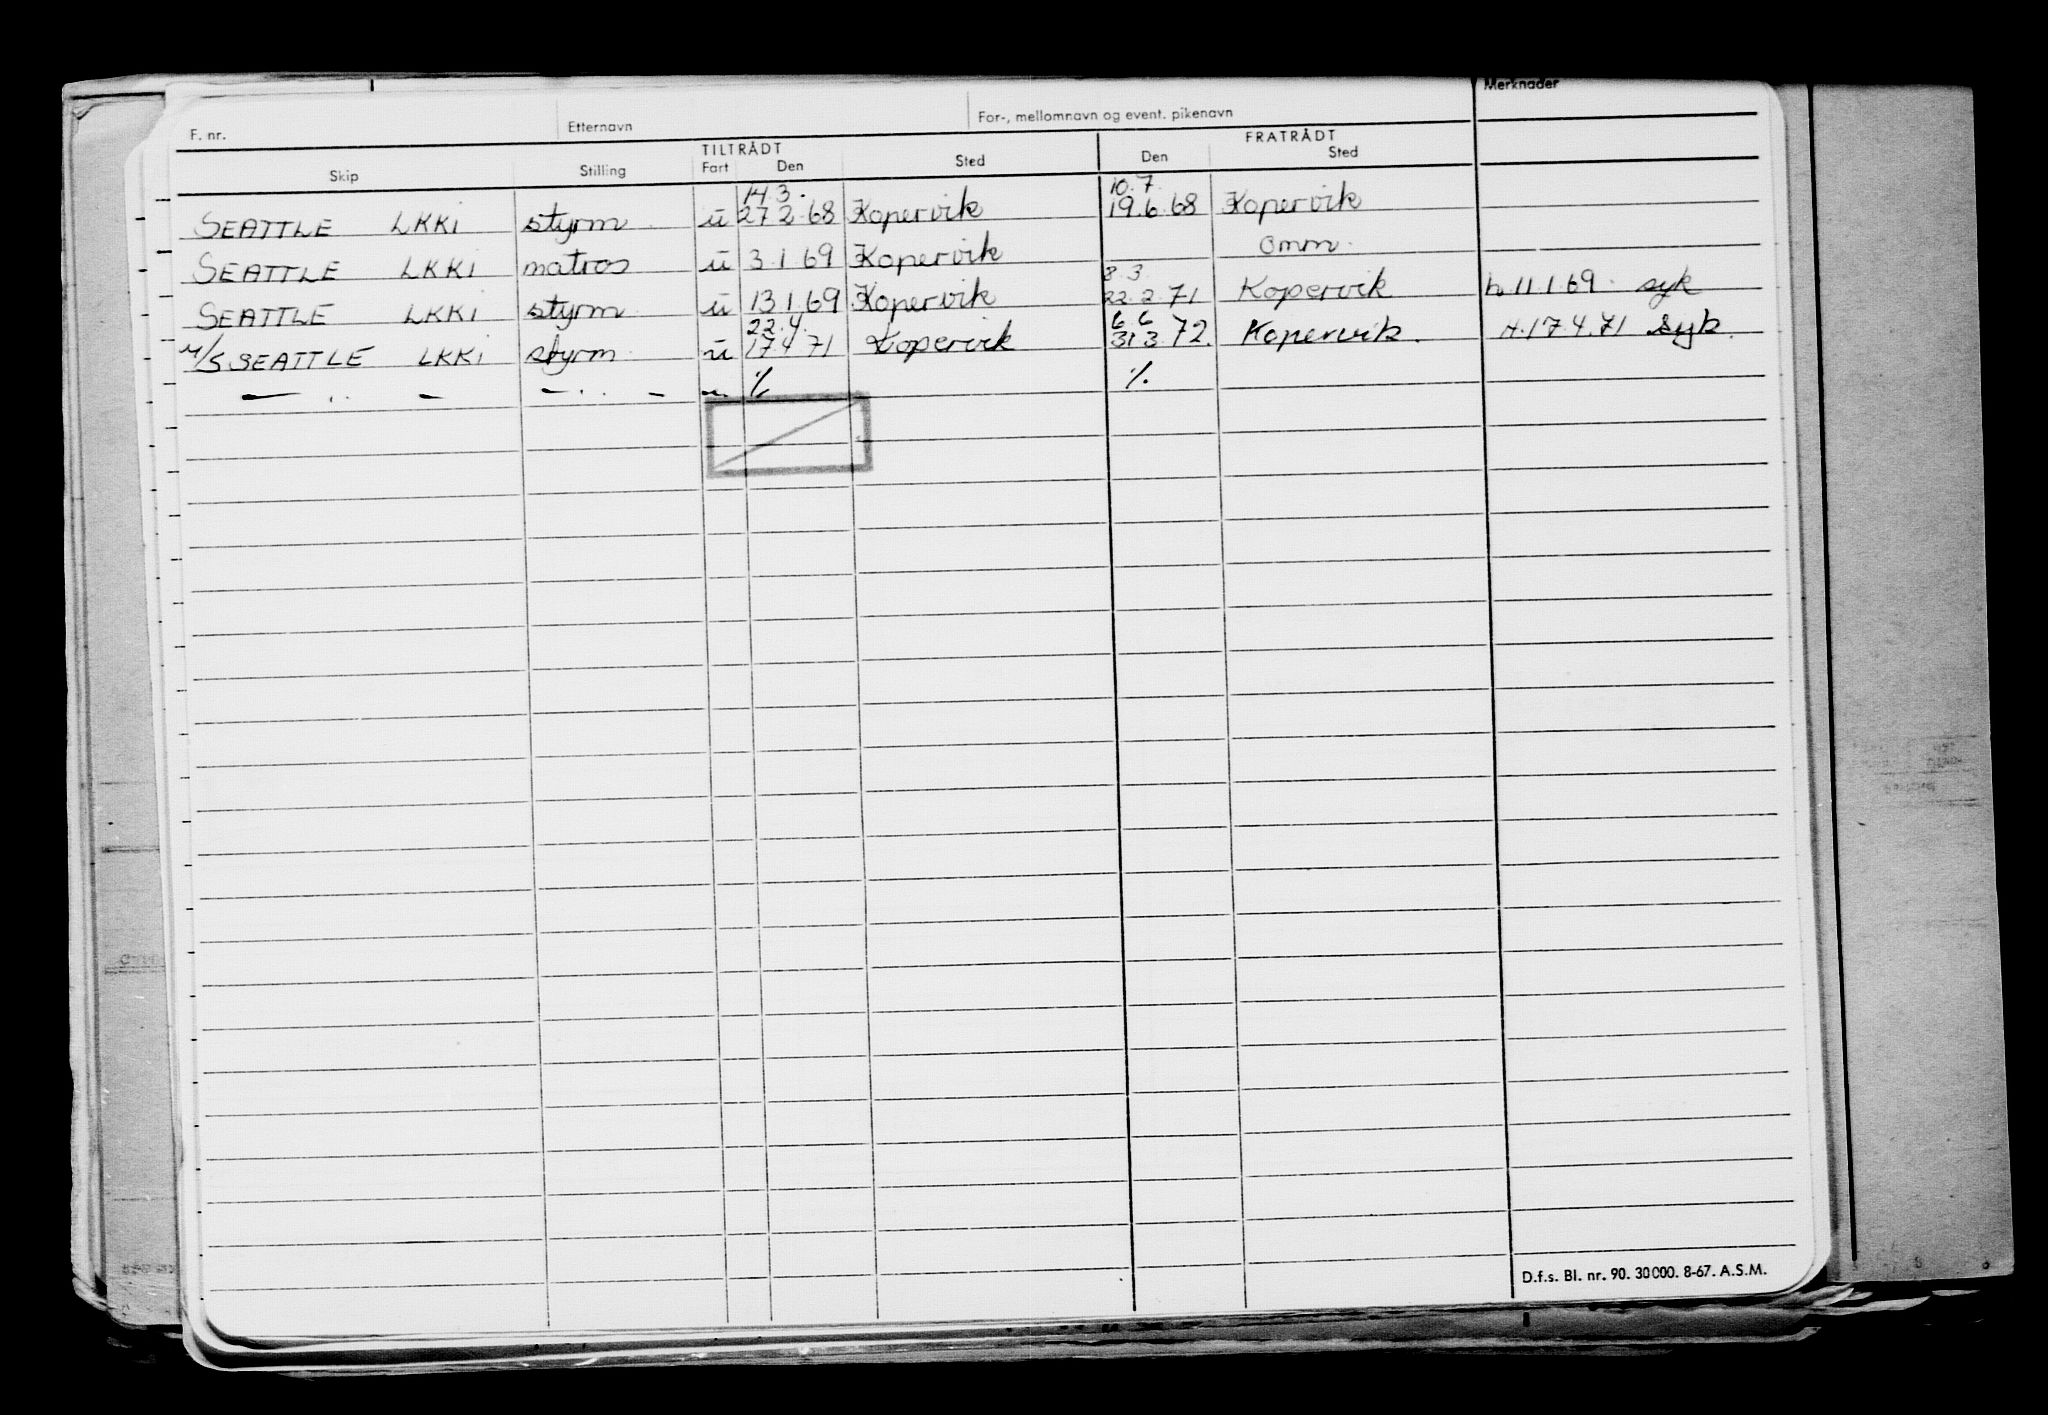 Merknader
F. nr. Etternavn For-, mellomnavn og event. pikenavn
TILTRÅDT FRATRÅDT
Skip Stilling Fart Den Sted Den Sted
14.3. 10.7.
SEATTLE LKKI styrm ü 27.2.68 Kopervik 19.6.68 Kopervik
SEATTLE LKKI matros ü 3.1.69 Kopervik Omm.
8.3
SEATTLE LKKI styrm ü 13.1.69 Kopervik 22.2.71 Kopervik h. 11.1.69. syk
22.4. 6.6
M/S SEATTLE LKKI styrm ü 17.4.71 Kopervik 31.3.72. Kopervik. H. 17.4.71 Syk.
— .. — — .. — %. %.
D.f.s. Bl. nr. 90. 30000. 8-67. A.S.M.